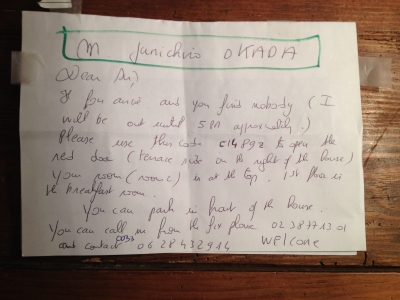 M Junichiro OKADA
Dear Sir,
If you arrive and you find nobody ( I
will be out until 5 PM approximately.)
Please use this code C1489Z to open the
red door (terrace side on the right of the house)
Your room (room C) is at the top. 1st floor is
the breakfast room.
You can park in front of the house.
You can call me from the fix phone 02 38 77 13 01
contact 0033 06 28 43 29 14 WELCOME